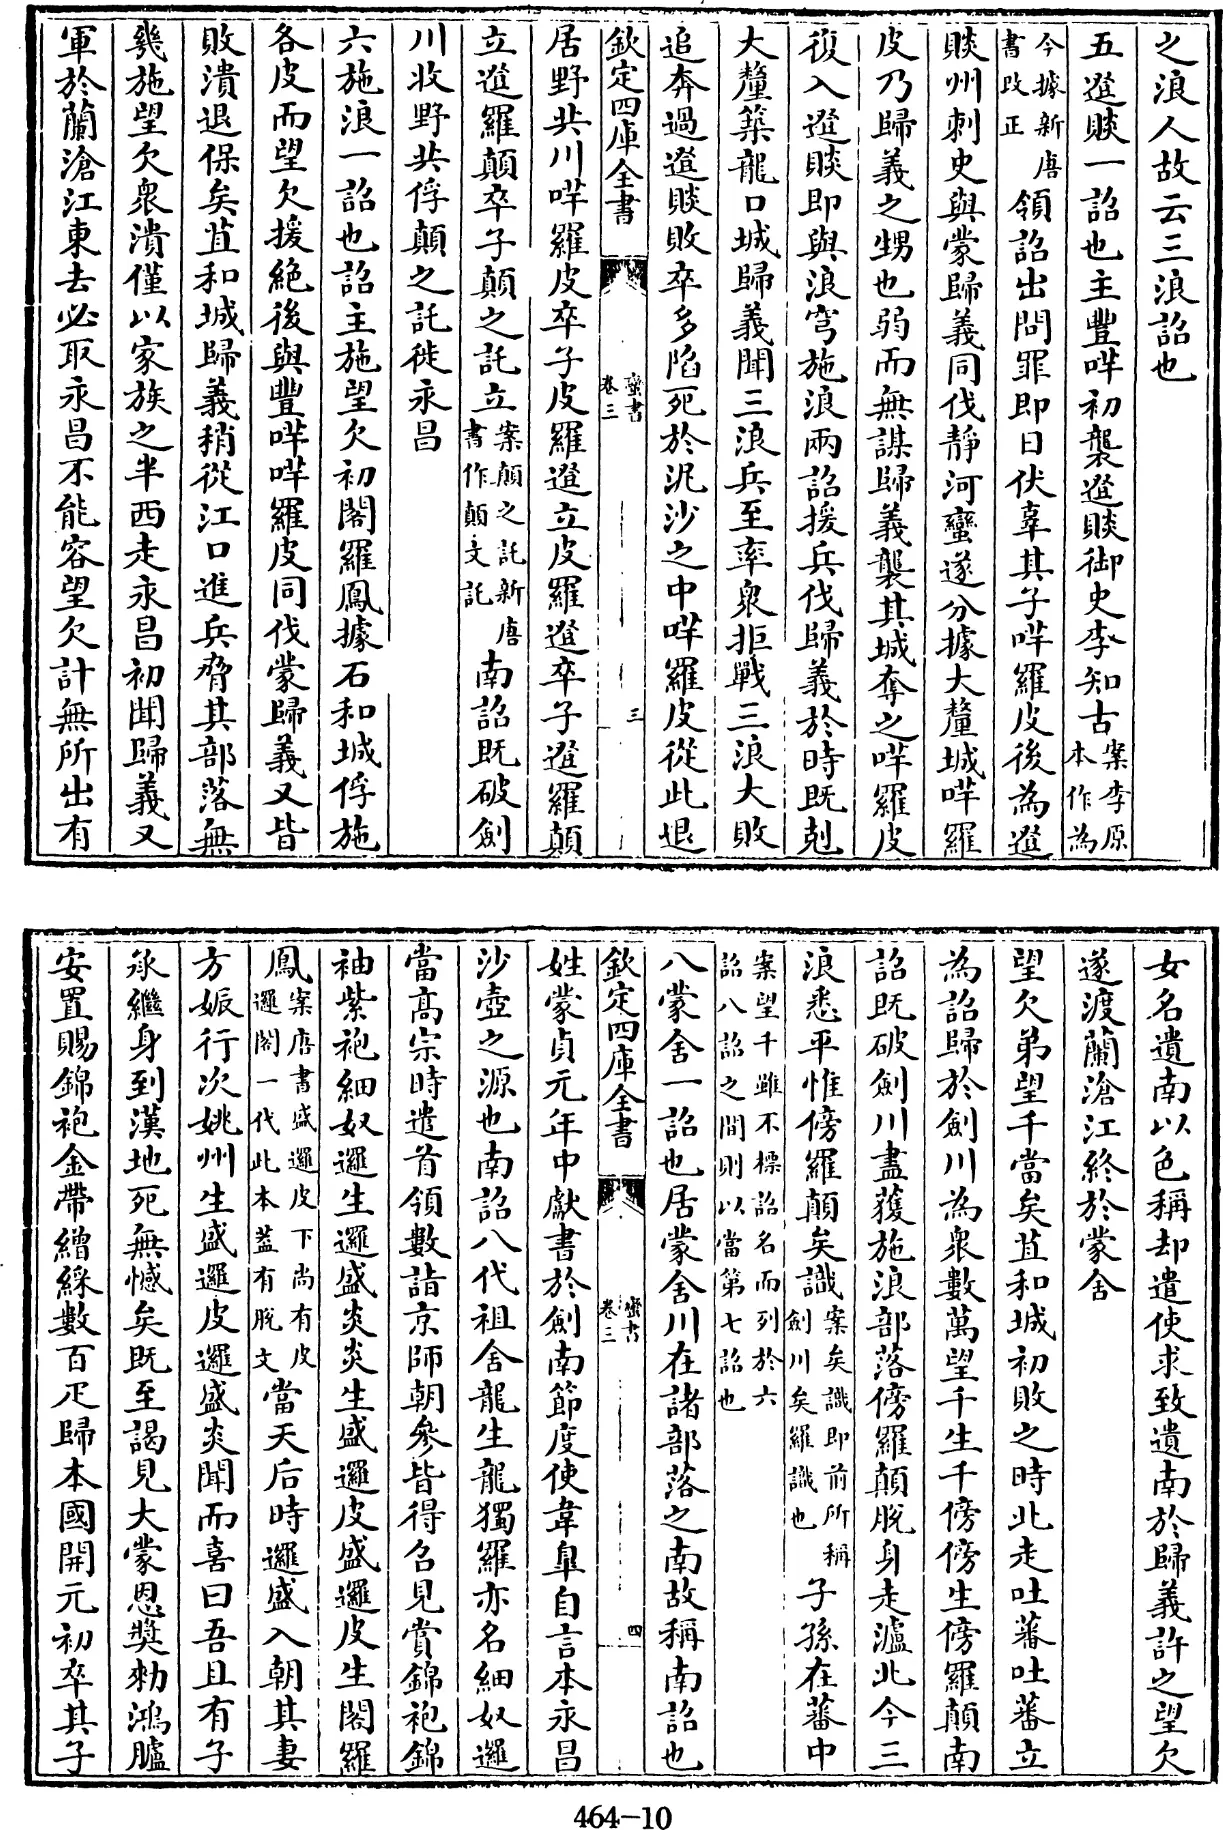 之浪人故云三浪詔也
五邆賧一詔也主豐咩初襲邆賧御史李知古案李原本作為
今據新唐書改正領詔出問罪即日伏辜其子咩羅皮後為邆
賧州刺史與蒙歸義同伐靜河蠻遂分據大釐城咩羅
皮乃歸義之甥也弱而無謀歸義襲其城奪之咩羅皮
復入邆賧即與浪穹施浪兩詔援兵伐歸義於時既剋
大釐築龍口城歸義聞三浪兵至率衆拒戰三浪大敗
追奔過邆賧敗卒多陷死於泥沙之中咩羅皮從此退
欽定四庫全書 蠻書 卷三 三
居野共川咩羅皮卒子皮羅邆立皮羅邆卒子邆羅顛
立邆羅顛卒子顛之託立案顛之託新唐書作顛文託南詔既破劍
川收野共俘顛之託徙永昌
六施浪一詔也詔主施望欠初閣羅鳳據石和城俘施
各皮而望欠援絕後與豐咩咩羅皮同伐蒙歸義又皆
敗潰退保矣苴和城歸義稍從江口進兵脅其部落無
幾施望欠衆潰僅以家族之半西走永昌初聞歸義又
軍於蘭滄江東去必取永昌不能容望欠計無所出有
女名遺南以色稱却遣使求致遺南於歸義許之望欠
遂渡蘭滄江終於蒙舍
望欠弟望千當矣苴和城初敗之時北走吐蕃吐蕃立
為詔歸於劍川為衆數萬望千生千傍傍生傍羅顛南
詔既破劍川盡獲施浪部落傍羅顛脫身走瀘北今三
浪悉平惟傍羅顛矣識案矣識即前所稱劍川矣羅識也子孫在蕃中
案望千雖不標詔名而列於六詔八詔之間則以當第七詔也
八蒙舍一詔也居蒙舍川在諸部落之南故稱南詔也
欽定四庫全書 蠻書 卷三 四
姓蒙貞元年中獻書於劍南節度使韋臯自言本永昌
沙壺之源也南詔八代祖舍龍生龍獨羅亦名細奴邏
當高宗時遣首領數詣京師朝參皆得召見賞錦袍錦
袖紫袍細奴邏生邏盛炎炎生盛邏皮盛邏皮生閣羅
鳳案唐書盛邏皮下尚有皮邏閣一代此本蓋有脫文當天后時邏盛入朝其妻
方娠行次姚州生盛邏皮邏盛炎聞而喜曰吾且有子
承繼身到漢地死無憾矣既至謁見大蒙恩獎勅鴻臚
安置賜錦袍金帶繒綵數百疋歸本國開元初卒其子
464-10